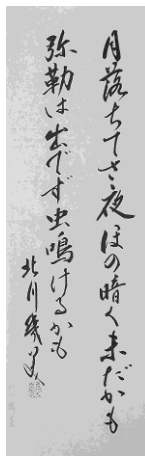 月落ちてさ夜ほの暗く未だかも
弥勒は出でず虫鳴けるかも
北月